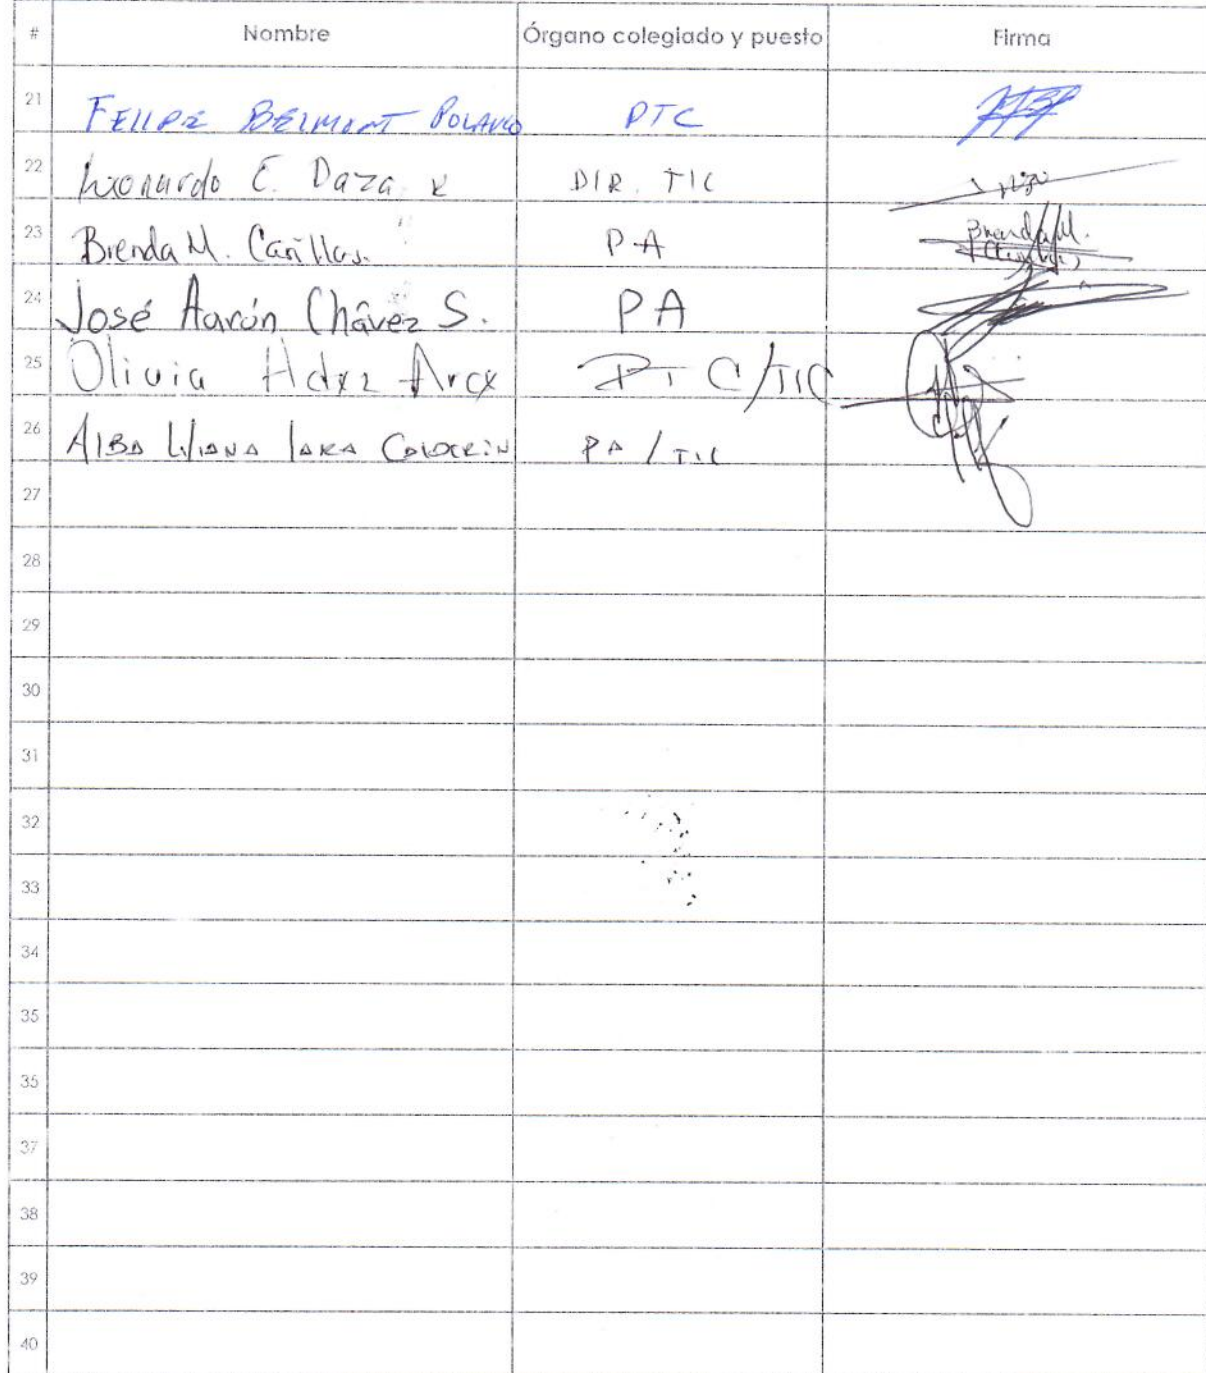 # Nombre Órgano colegiado y puesto Firma
21 FELIPE BELMONT POLANCO PTC
22 Leonardo E. Daza DIR. TIC
23 Brenda M. Carillas. PA Brenda M.
24 José Aarón Chávez S. PA
25 Olivia Hdez Arce PTC/TIC
26 ALBA LILIANA LARA CALDERÓN PA/TIC
27
28
29
30
31
32
33
34
35
35
37
38
39
40